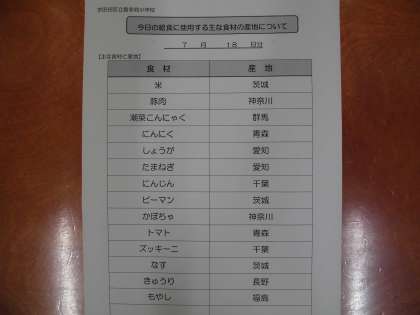 今日の給食に使用する主な食材の産地について
7 月 18 日分
【主な食材と産地】
食材 産地
米 茨城
豚肉 神奈川
潮菜こんにゃく 群馬
にんにく 青森
しょうが 愛知
たまねぎ 愛知
にんじん 千葉
ピーマン 茨城
かぼちゃ 神奈川
トマト 青森
ズッキーニ 千葉
なす 茨城
きゅうり 長野
もやし 福島